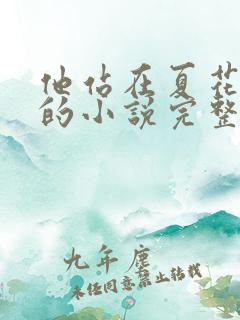 他站在夏花
的小说完整
九年鹿
未经同意禁止转载